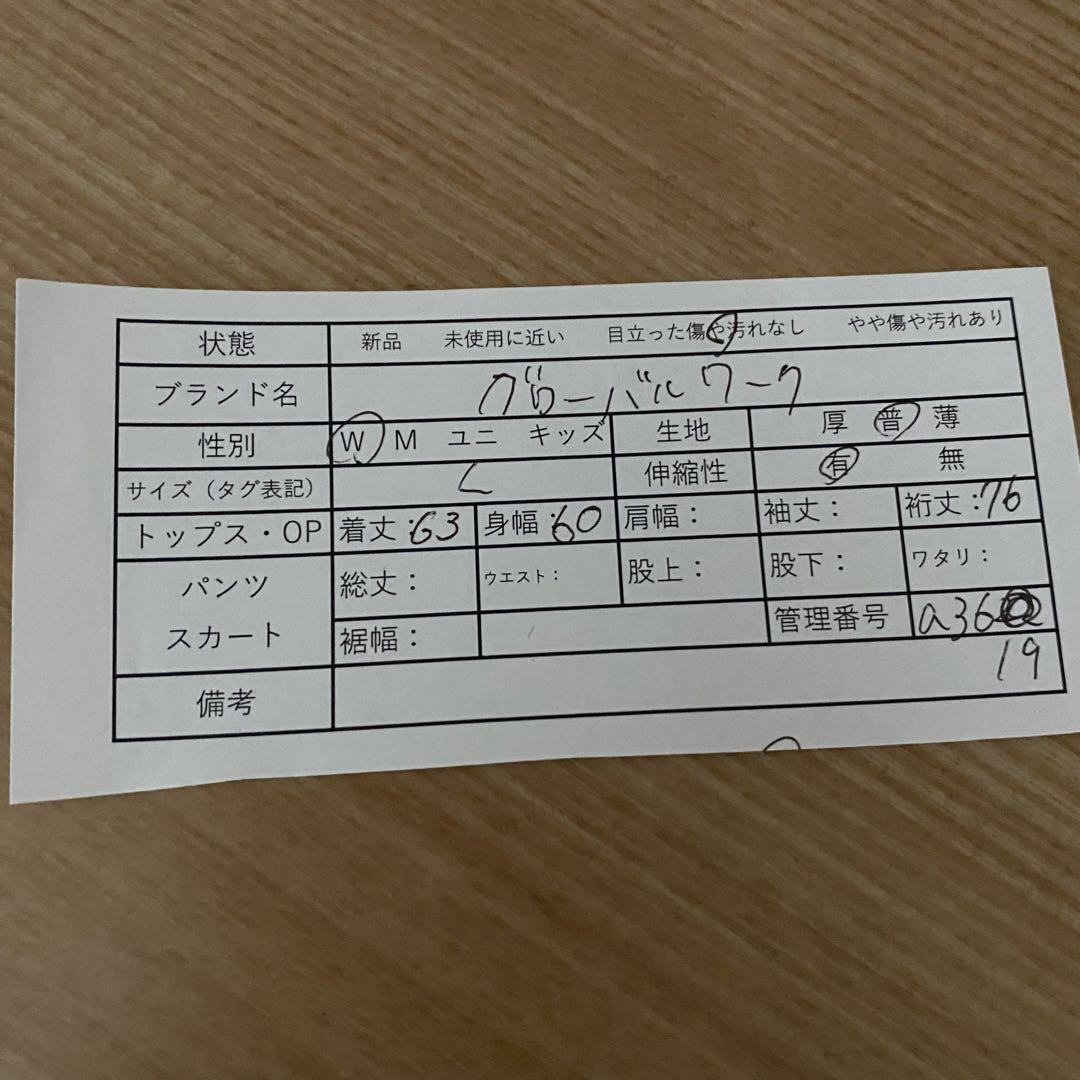 状態 新品 未使用に近い 目立った傷や汚れなし やや傷や汚れあり
ブランド名 グローバルワーク
性別 W M ユニ キッズ 生地 厚 普 薄
サイズ（タグ表記） L 伸縮性 有 無
トップス・OP 着丈：63 身幅：60 肩幅： 袖丈： 裄丈：76
パンツ 総丈： ウエスト： 股上： 股下： ワタリ：
スカート 裾幅： 管理番号 a36
19
備考